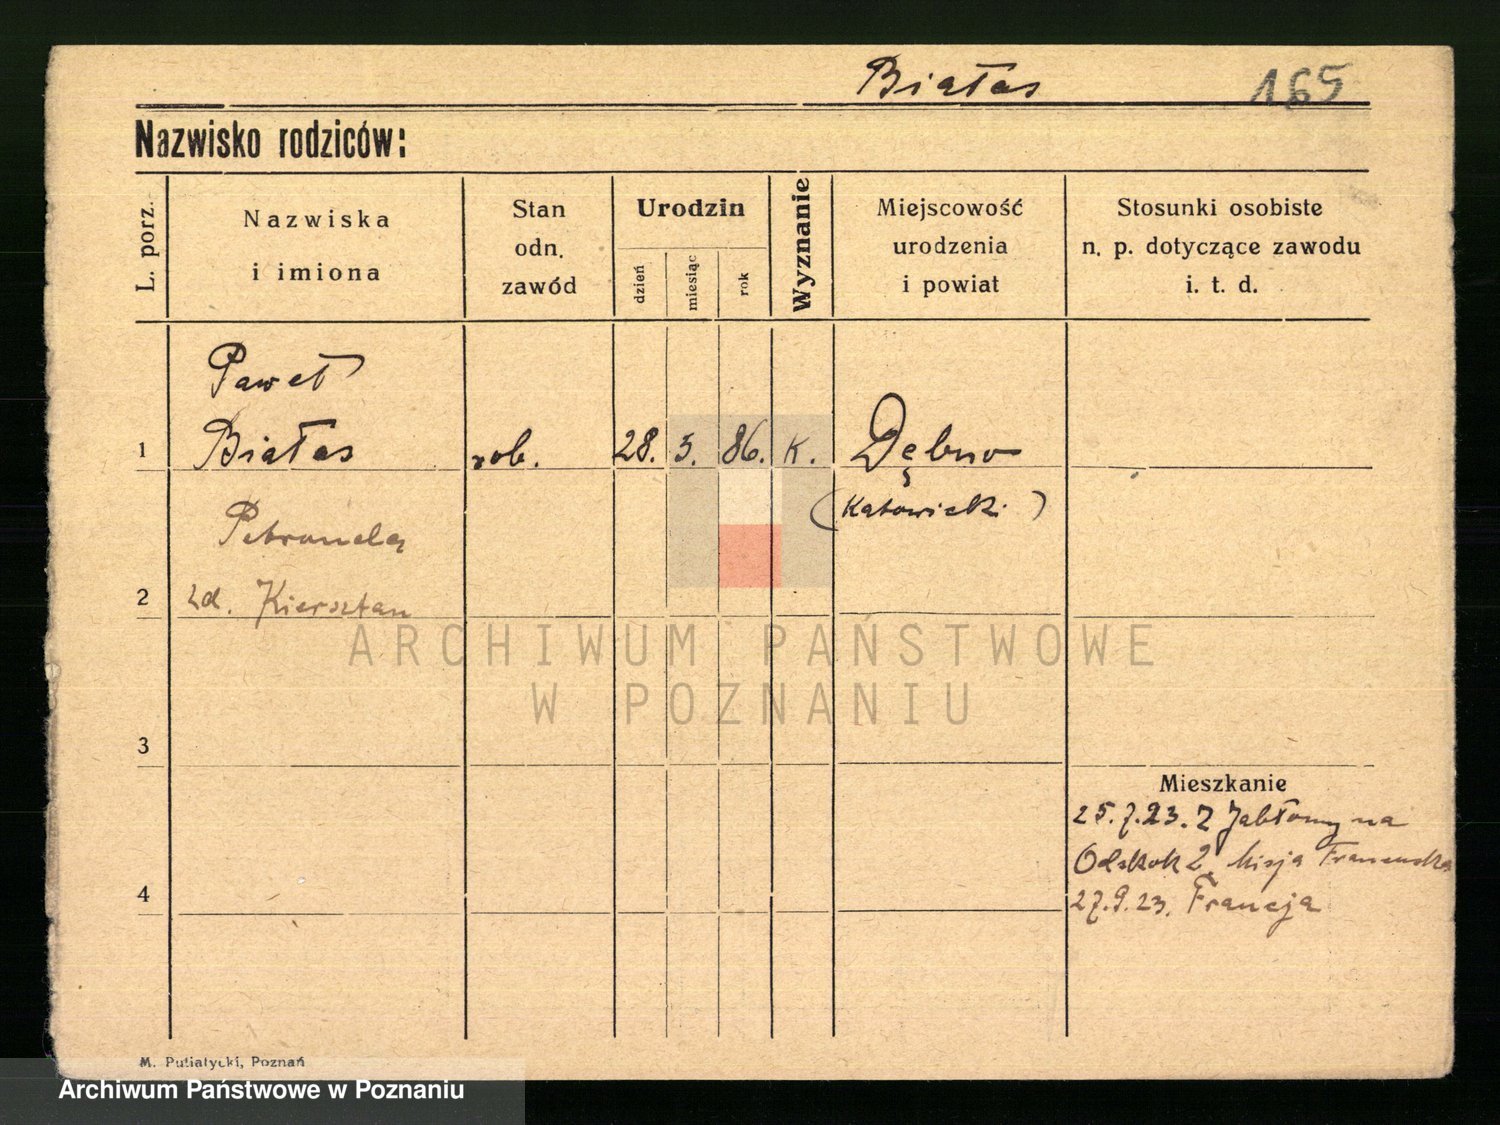 Białas 165
Nazwisko rodziców:
L. porz.
Nazwiska
i imiona
Stan
odn.
zawód
Urodzin
dzień
miesiąc
rok
Wyznanie
Miejscowość
urodzenia
i powiat
Stosunki osobiste
n. p. dotyczące zawodu
i. t. d.
Paweł
1 Białas rob. 28. 5. 86. K. Dębno
(Katowicki)
Petronela
2 zd. Kiersztan
ARCHIWUM PAŃSTWOWE
W POZNANIU
3
Mieszkanie
25.7.23. Z Jabłomy na
Odskok 2. Misja Francuska
4
27.9.23. Francja
M. Putiatycki, Poznań
Archiwum Państwowe w Poznaniu